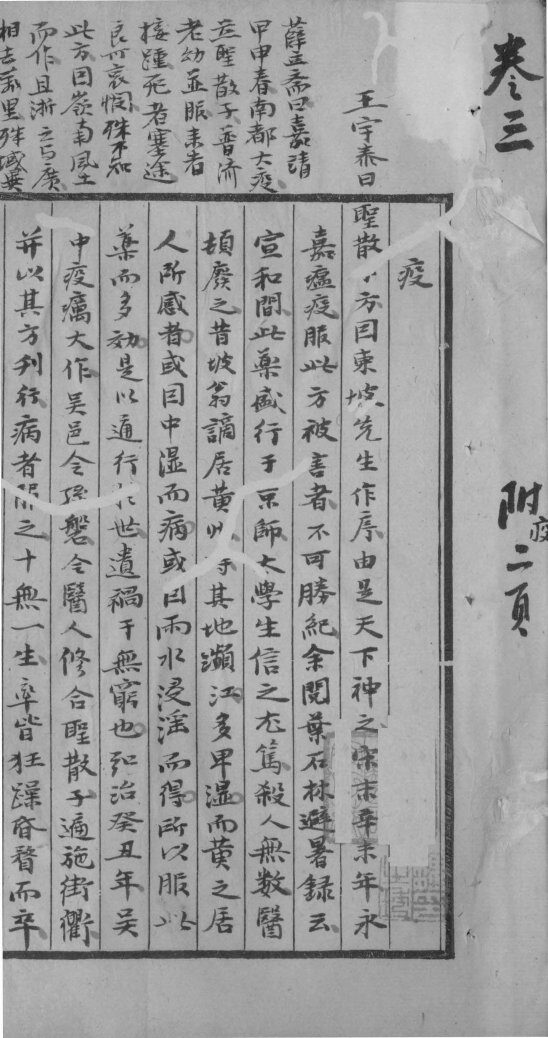 卷三
附疫二頁
疫
王宇泰曰
聖散子方因東坡先生作序由是天下神之宋末辛未年永
嘉瘟疫服此方被害者不可勝紀余閱葉石林避暑錄云
宣和間此藥盛行于京師太學生信之尤篤殺人無数醫
頓廢之昔坡翁謫居黃州時其地瀕江多卑濕而黃之居
人所感者或因中湿而病或因雨水浸淫而得所以服此
藥而多効是以通行於世遺禍于無窮也弘治癸丑年吴
中疫癘大作吴邑令孫磐令醫人修合聖散子遍施街衢
并以其方刋行病者服之十無一生率皆狂躁昏瞀而卒
薛立斋曰嘉靖
甲申春南都大疫
在聖散子普濟
老幼並服来者
接踵死者塞途
良可哀憫殊不知
此方因嶺南風土
而作且浙之与廣
相去萬里殊域異